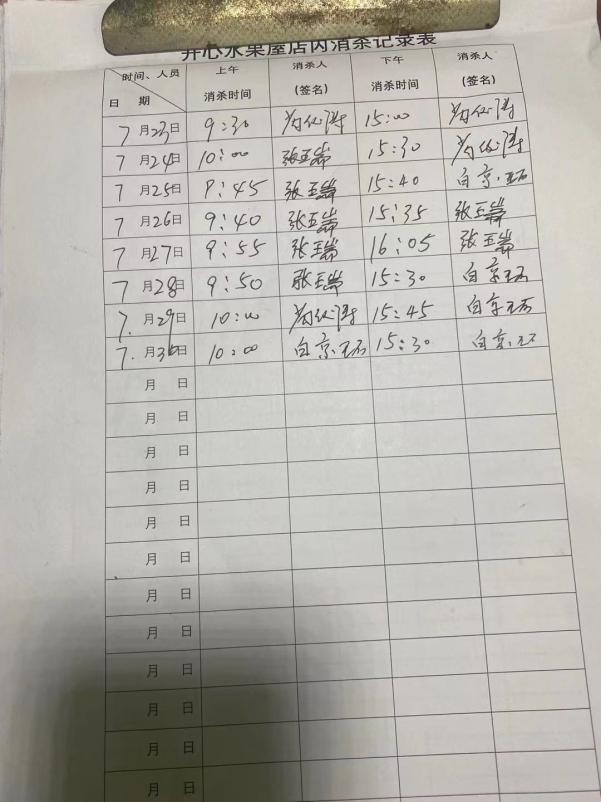 开心水果屋店内消杀记录表
时间、人员 上午 消杀人 下午 消杀人
日 期 消杀时间 (签名) 消杀时间 (签名)
7月23日 9:30 15:00
7月24日 10:00 张玉端 15:30
7月25日 9:45 张玉端 15:40 白京
7月26日 9:40 张玉端 15:35 张玉端
7月27日 9:55 张玉端 16:05 张玉端
7月28日 9:50 张玉端 15:30 白京
7.月29日 10:00 15:45 白京
7.月30日 10:00 白京 15:30 白京
月 日
月 日
月 日
月 日
月 日
月 日
月 日
月 日
月 日
月 日
月 日
月 日